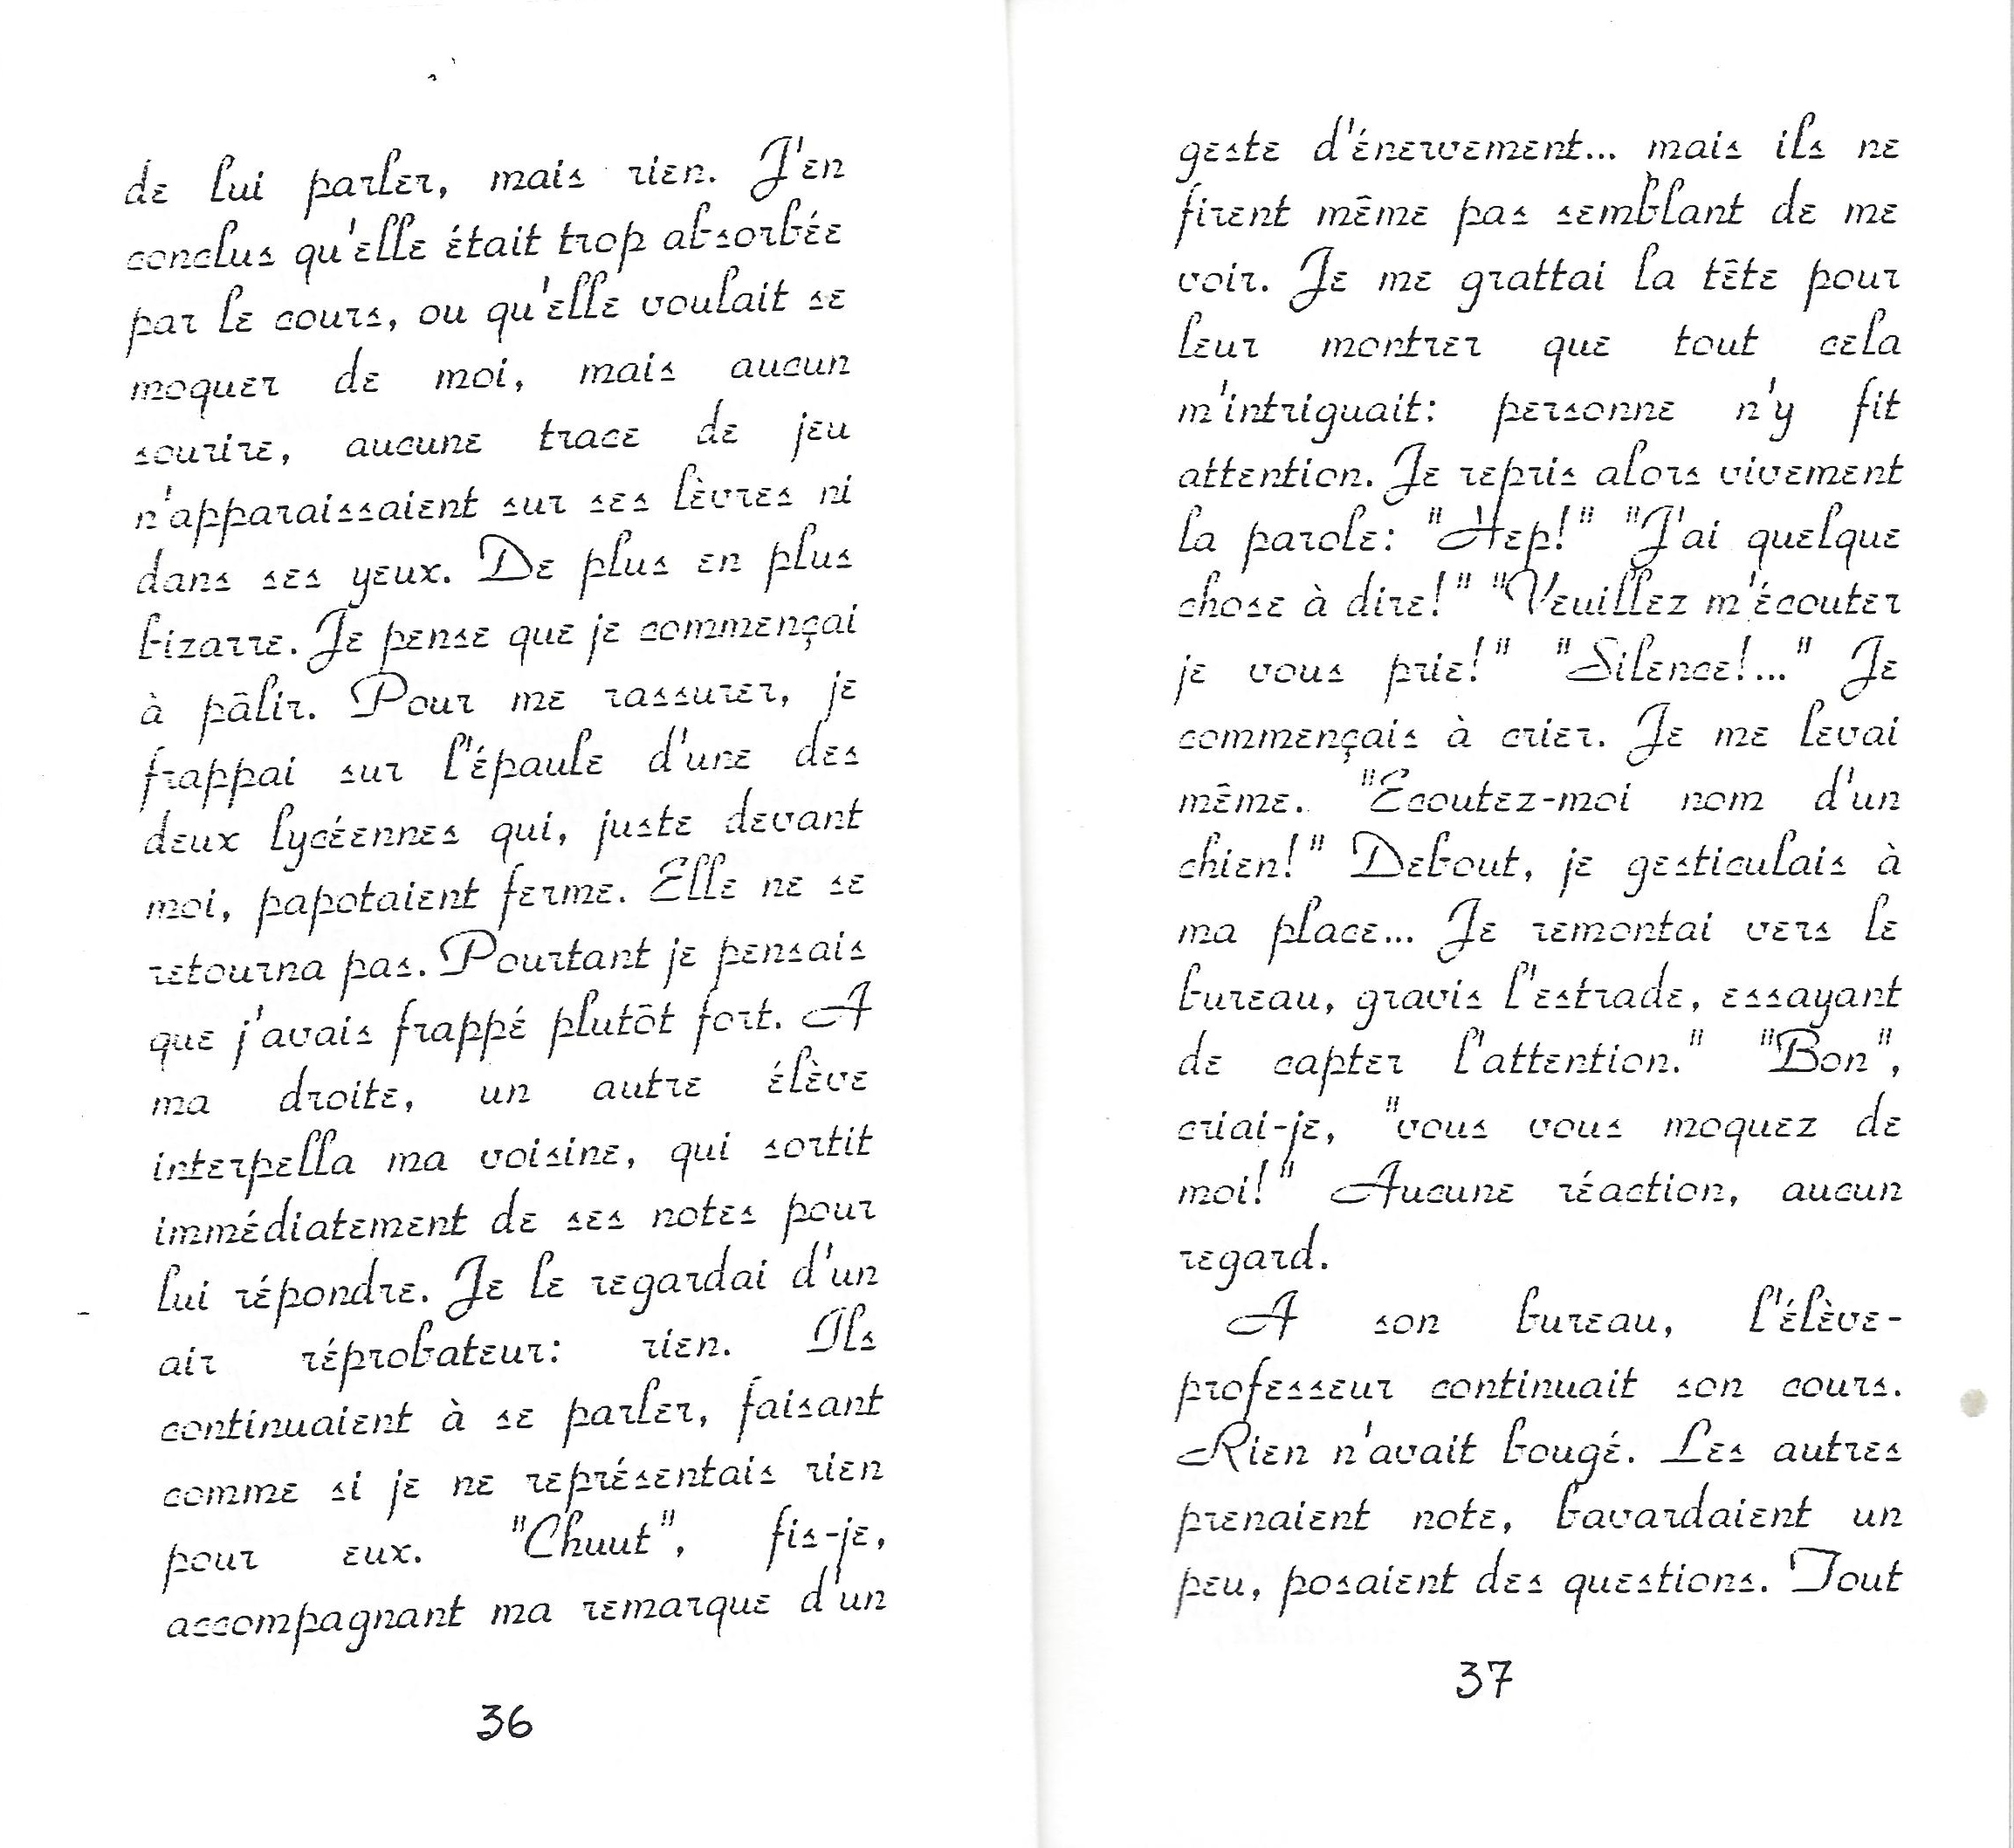 de lui parler, mais rien. J'en
conclus qu'elle était trop absorbée
par le cours, ou qu'elle voulait se
moquer de moi, mais aucun
sourire, aucune trace de jeu
n'apparaissaient sur ses lèvres ni
dans ses yeux. De plus en plus
bizarre. Je pense que je commençai
à pâlir. Pour me rassurer, je
frappai sur l'épaule d'une des
deux lycéennes qui, juste devant
moi, papotaient ferme. Elle ne se
retourna pas. Pourtant je pensais
que j'avais frappé plutôt fort. A
ma droite, un autre élève
interpella ma voisine, qui sortit
immédiatement de ses notes pour
lui répondre. Je le regardai d'un
air réprobateur: rien. Ils
continuaient à se parler, faisant
comme si je ne représentais rien
pour eux. "Chuut", fis-je,
accompagnant ma remarque d'un
36
geste d'énervement... mais ils ne
firent même pas semblant de me
voir. Je me grattai la tête pour
leur montrer que tout cela
m'intriguait: personne n'y fit
attention. Je repris alors vivement
la parole: "Hep!" "J'ai quelque
chose à dire!" "Veuillez m'écouter
je vous prie!" "Silence!..." Je
commençais à crier. Je me levai
même. "Ecoutez-moi nom d'un
chien!" Debout, je gesticulais à
ma place... Je remontai vers le
bureau, gravis l'estrade, essayant
de capter l'attention." "Bon",
criai-je, "vous vous moquez de
moi!" Aucune réaction, aucun
regard.
A son bureau, l'élève-
professeur continuait son cours.
Rien n'avait bougé. Les autres
prenaient note, bavardaient un
peu, posaient des questions. Tout
37